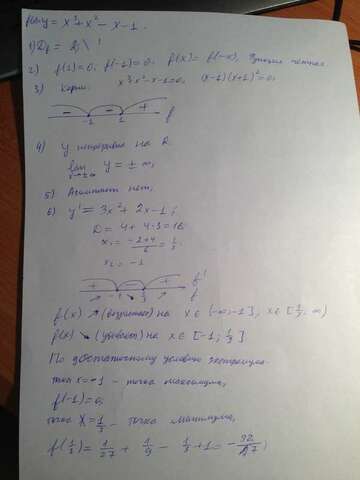 y = x³ + x² - x - 1.
1) D_f = R
2) f(1) = 0. f(-1) = 0. f(x) = f(-x), Функция четная
3) Корни: x³ + x² - x - 1 = 0, (x-1)(x+1)² = 0,
- - +
-1 1 f
4) y непрерывна на R
lim y = ± ∞,
x→±∞
5) Асимптот нет,
6) y' = 3x² + 2x - 1;
D = 4 + 4·3 = 16
x₁ = -2+4/6 = 1/3.
x₂ = -1
+ - + f'
-1 1/3 f
f(x) ↗ (возрастает) на x ∈ (-∞; -1], x ∈ [1/3, ∞)
f(x) ↘ (убывает) на x ∈ [-1; 1/3]
По достаточному условию экстремума
точка x = -1 - точка максимума,
f(-1) = 0,
точка x = 1/3 - точка минимума,
f(1/3) = 1/27 + 1/9 - 1/3 + 1 = -32/27